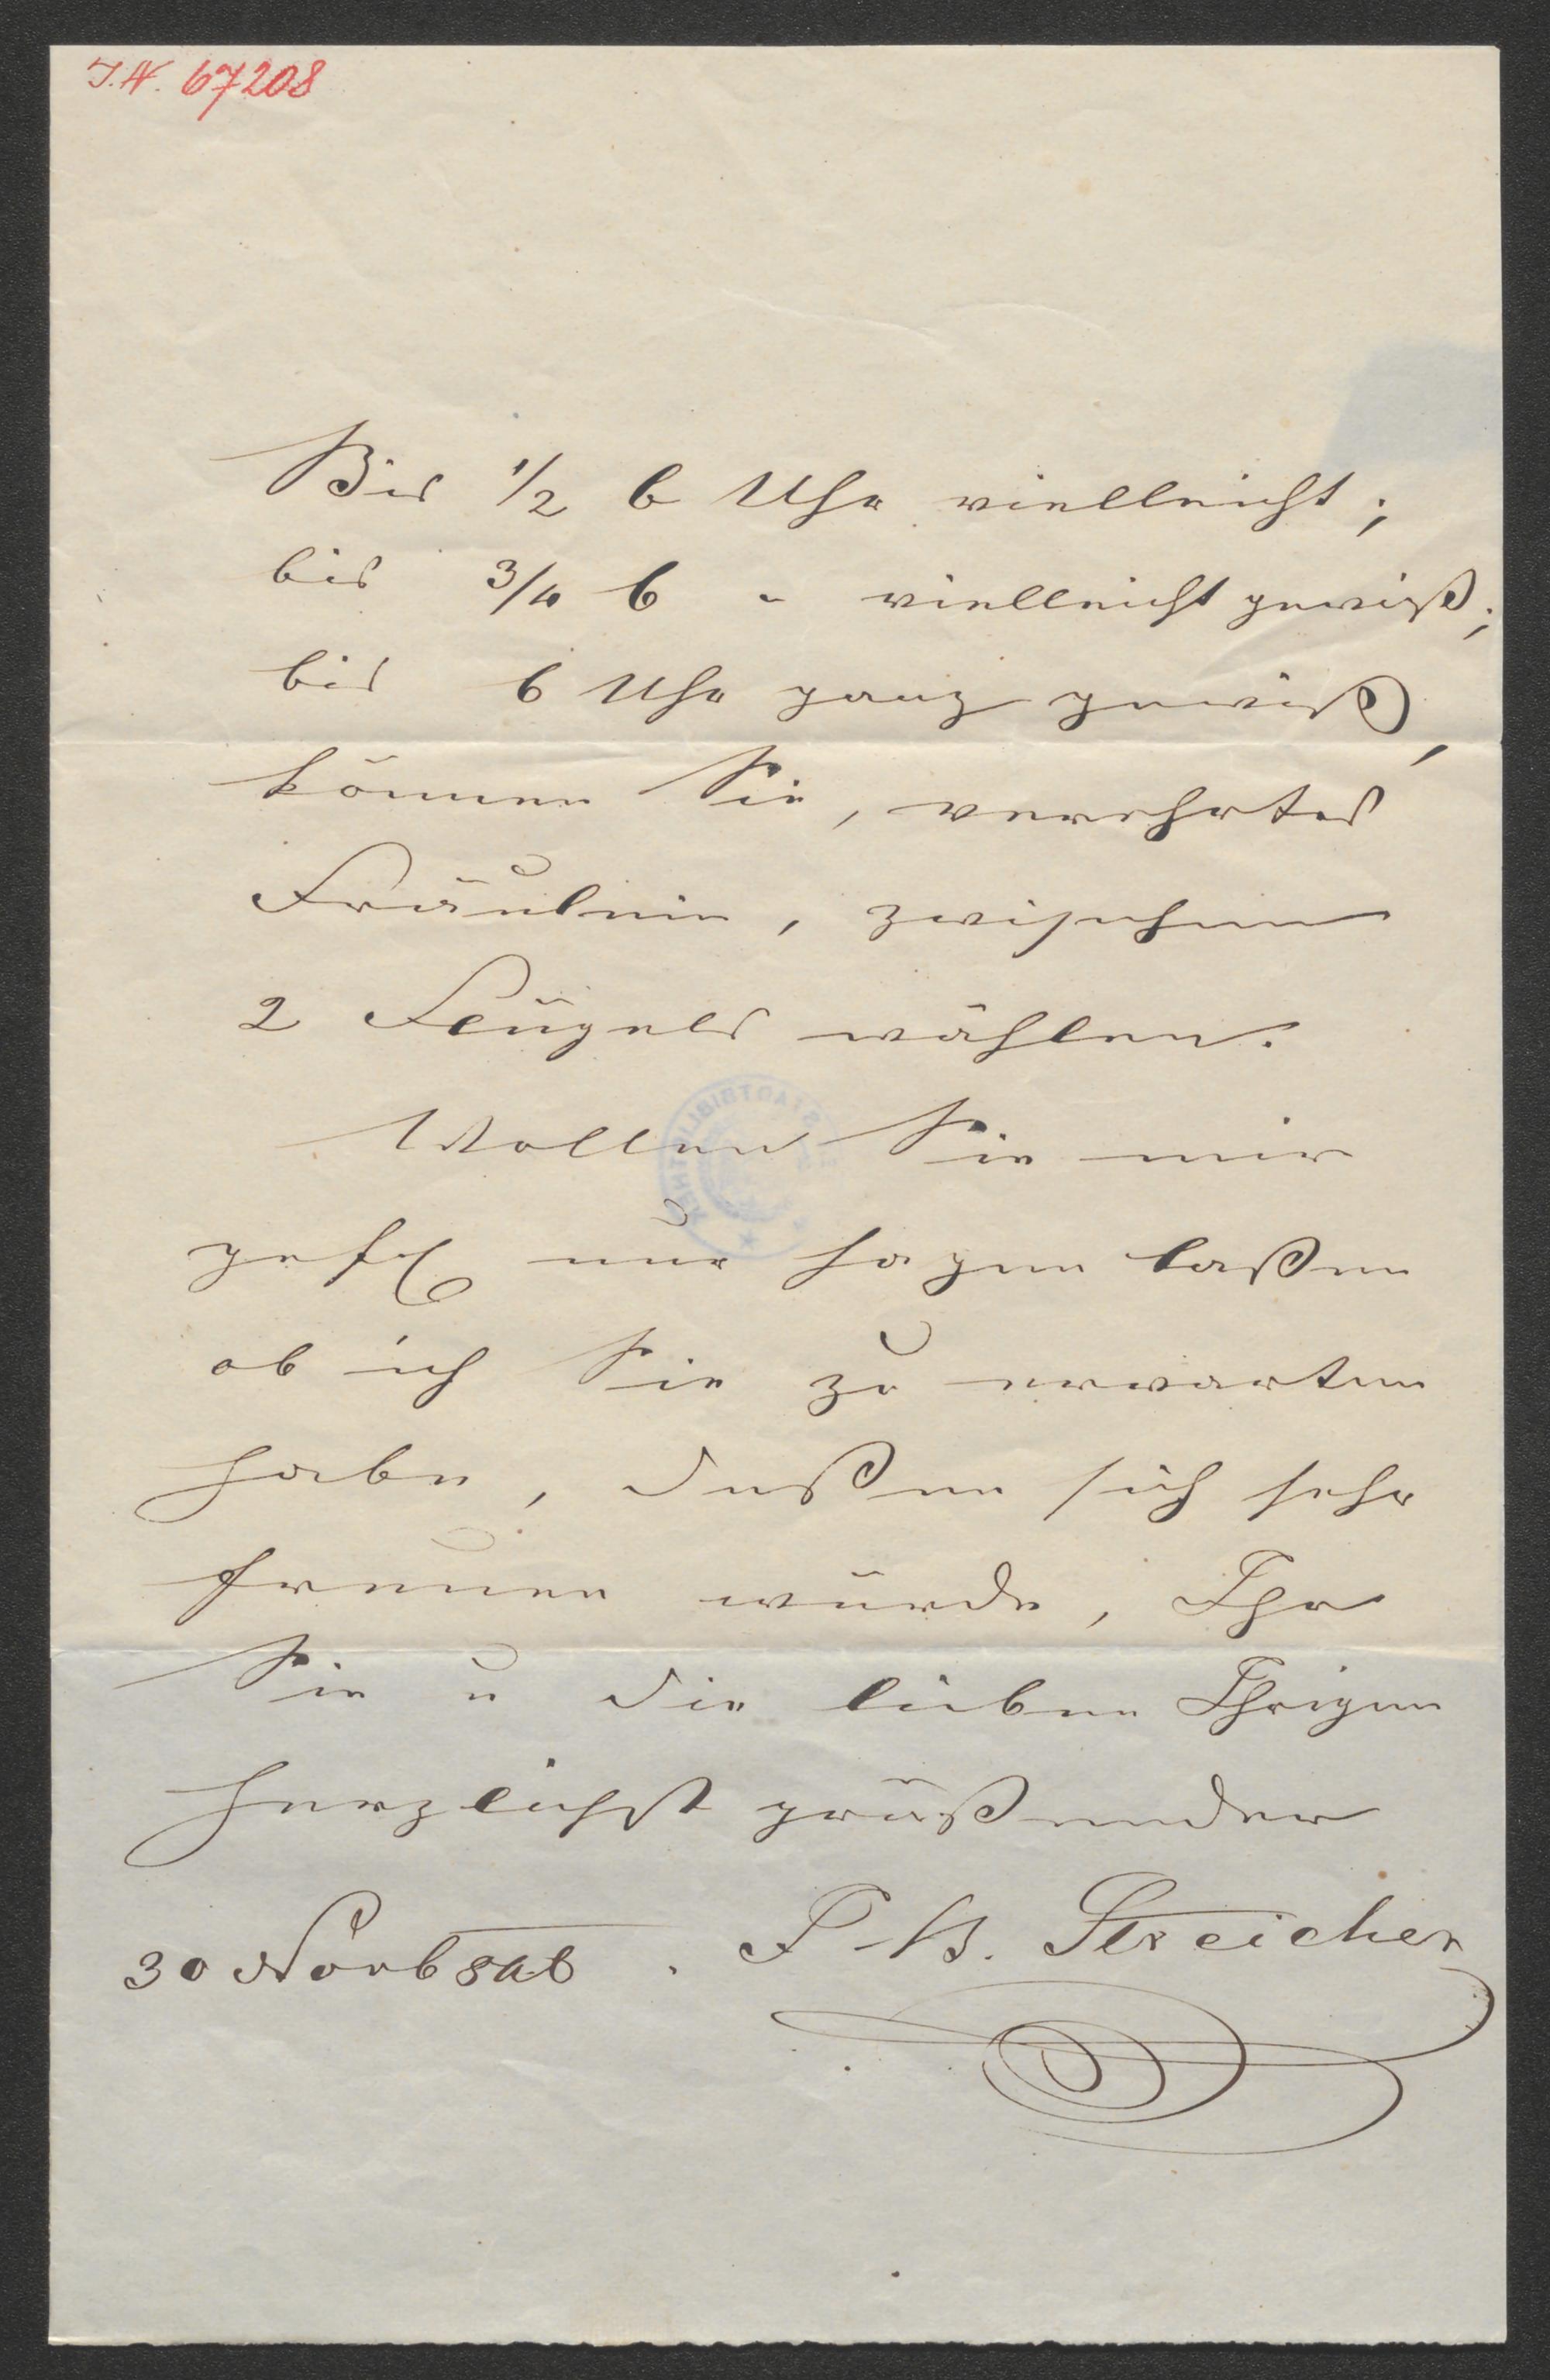 I.N. 67208
Bis 1/2 6 Uhr vielleicht;
bis 3/4 6 " vielleicht gewiß;
bis 6 Uhr ganz gewiß,
können Sie, verehrtes
Fräulein, zwischen
2 Flügels wählen.
Wollen Sie mir
gefl nur sagen laßen
ob ich Sie zu erwarten
habe, deßen sich sehr
freuen würde, Ihr
Sie u die lieben Ihrigen
herzlichst grüßender
J. B. Streicher
30 Novb